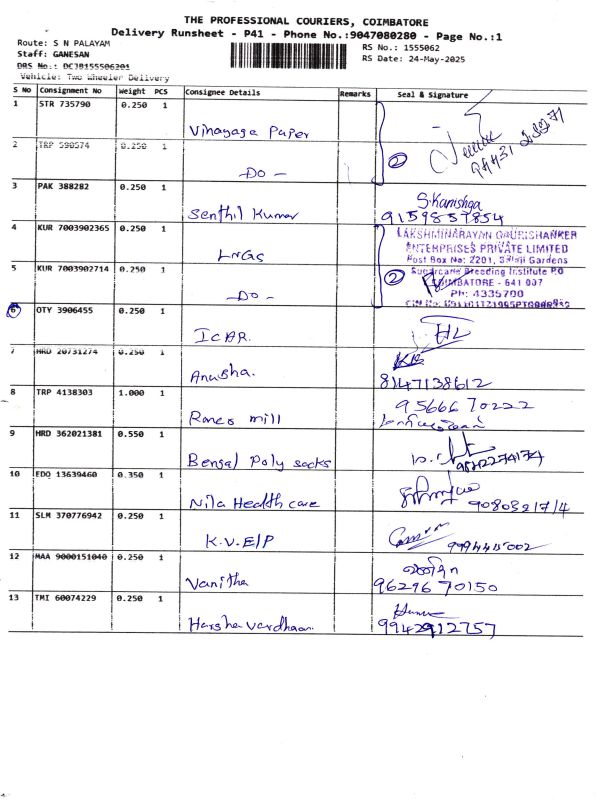 THE PROFESSIONAL COURIERS, COIMBATORE
Delivery Runsheet - P41 - Phone No.:9047080280 - Page No.:1
Route: S N PALAYAM
Staff: GANESAN
DRS No.: DCJB155506201
Vehicle: Two Wheeler Delivery
RS No.: 1555062
RS Date: 24-May-2025
S No Consignment No Weight PCS Consignee Details Remarks Seal & Signature
1 STR 735790 0.250 1
Vinayaga Paper
2 TRP 590574 0.250 1
-Do-
2
3 PAK 388282 0.250 1
Senthil Kumar
S.Kanishga
9159857854
4 KUR 7003902365 0.250 1
LNGS
LAKSHMINARAYAN GOURISHANKER
ENTERPRISES PRIVATE LIMITED
Post Box No: 2201, Gardens
Sugarcane Breeding Institute P.O
COIMBATORE - 641 007
Ph: 4335700
5 KUR 7003902714 0.250 1
-Do-
2
6 OTY 3906455 0.250 1
ICAR.
7 HRD 20731274 0.250 1
Anusha.
8147138612
8 TRP 4138303 1.000 1
Ranco mill
9566670222
9 HRD 362021381 0.550 1
Bengal Poly socks
10 EDO 13639460 0.350 1
Nila Health care
11 SLM 370776942 0.250 1
K.V.E/P
12 MAA 9000151040 0.250 1
Vanitha
9629670150
13 TMI 60074229 0.250 1
Harsha Vardhaan.
9942912757